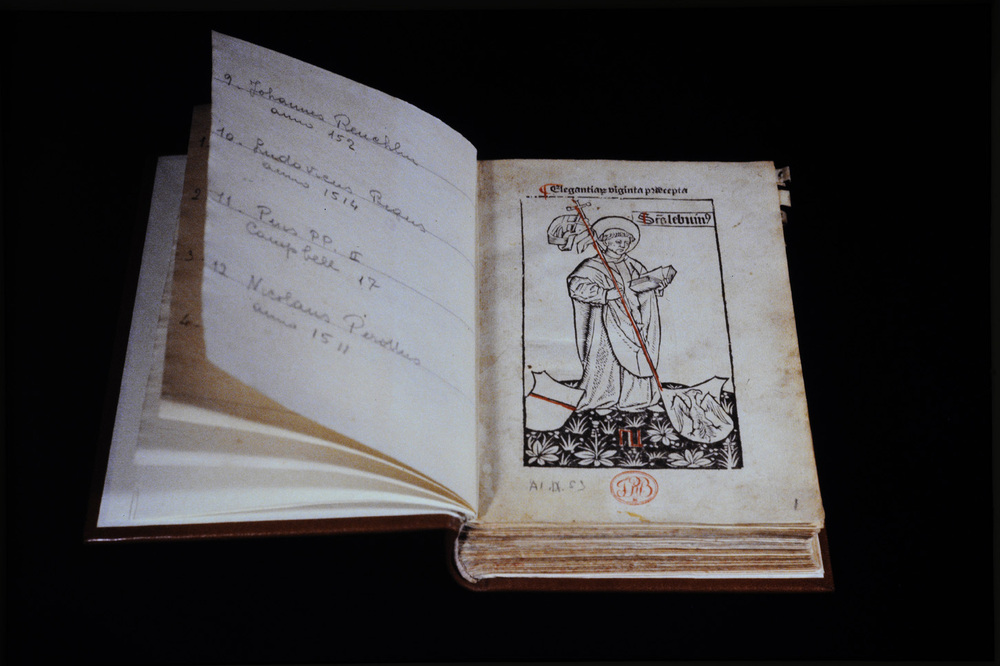 9. Johannes Reuchlin
anno 152
10. Ludovicus Bruns
anno 1514
11. Pius PP. II
Campbell 17
12 Nicolaus Perottus
anno 1511
2
3
4.
Elegantiaꝝ viginta precepta
Sctꝰ lebuinꝰ
III
AI.IX.53
1